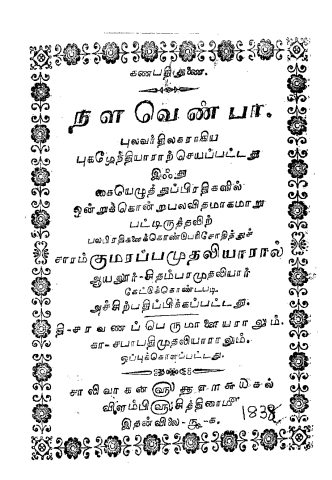 கணபதிதுணை.
நளவெண்பா.
புலவர்திலகராகிய
புகழேந்தியாராற் செயப்பட்டது
இஃது
கையெழுத்துப்பிரதிகளில்
ஒன்றுக்கொன்றுபலவிதமாகமாறு
பட்டிருத்தலிற்
பலபிரதிகளைக்கொண்டுபரிசோதித்துச்
சாரம்குமரப்பமுதலியாரால்
ஆயலூர்-சிதம்பரமுதலியார்
கேட்டுக்கொண்டபடி
அச்சிற்பதிப்பிக்கப்பட்டது.
தி-சரவணப்பெருமாளையராலும்.
கா-சபாபதிமுதலியாராலும்.
ஒப்புக்கொளப்பட்டது.
சாலிவாகன
விளம்பி சித்திரை
இதன்விலை-ரூ-க.
1838